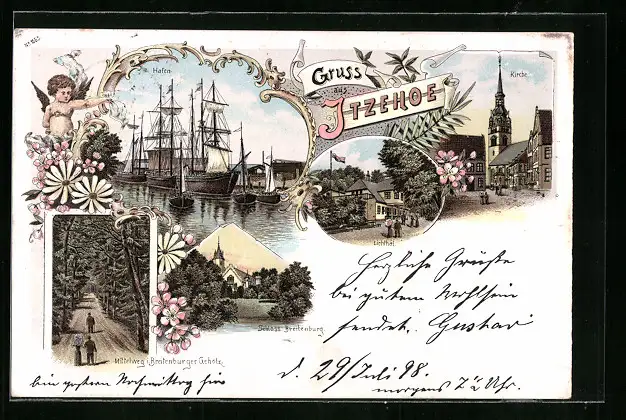 Hafen
Gruss
aus
ITZEHOE
Kirche
Lichthal.
Schloss Breitenburg.
Mittelweg i. Breitenburger Gehölz.
Herzliche Grüße
bei gutem Wohlsein
sendet. Gustav
d. 29/Juli 98.
morgens 7½ Uhr.
bin gestern Nachmittag hier